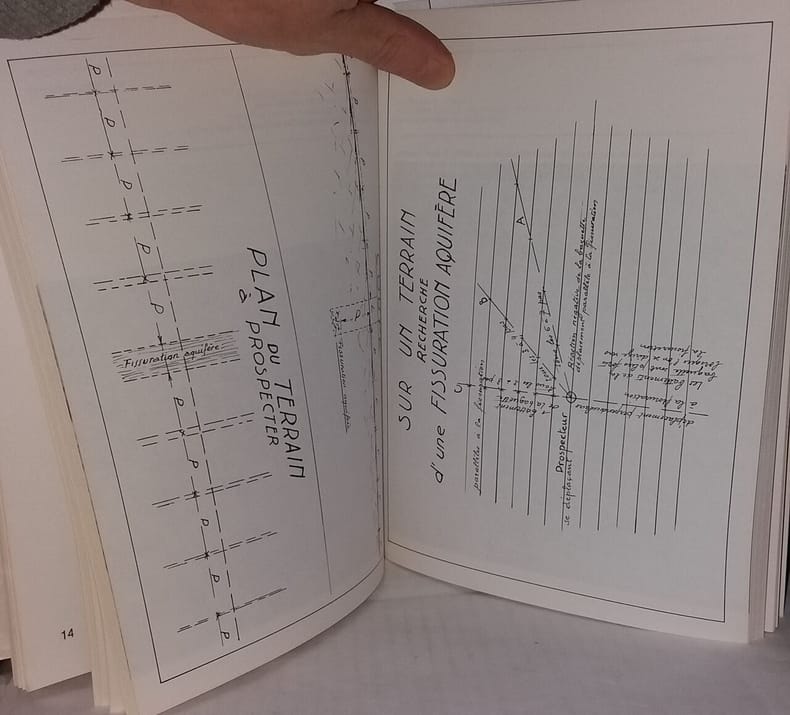 P
P
P
P
P
Fissuration aquifère
P
P
P
P
P
PLAN DU TERRAIN
à PROSPECTER
P
Fissuration aquifère
14
SUR UN TERRAIN
RECHERCHE
d'une FISSURATION AQUIFÈRE
parallèle à la fissuration
C
B
A
Battement
de la baguette
Prospecteur
se déplaçant
Réaction négative de la baguette
déplacement parallèle à la fissuration
déplacement perpendiculaire
à la fissuration
Les battements de la
baguette sont plus forts
la fissuration